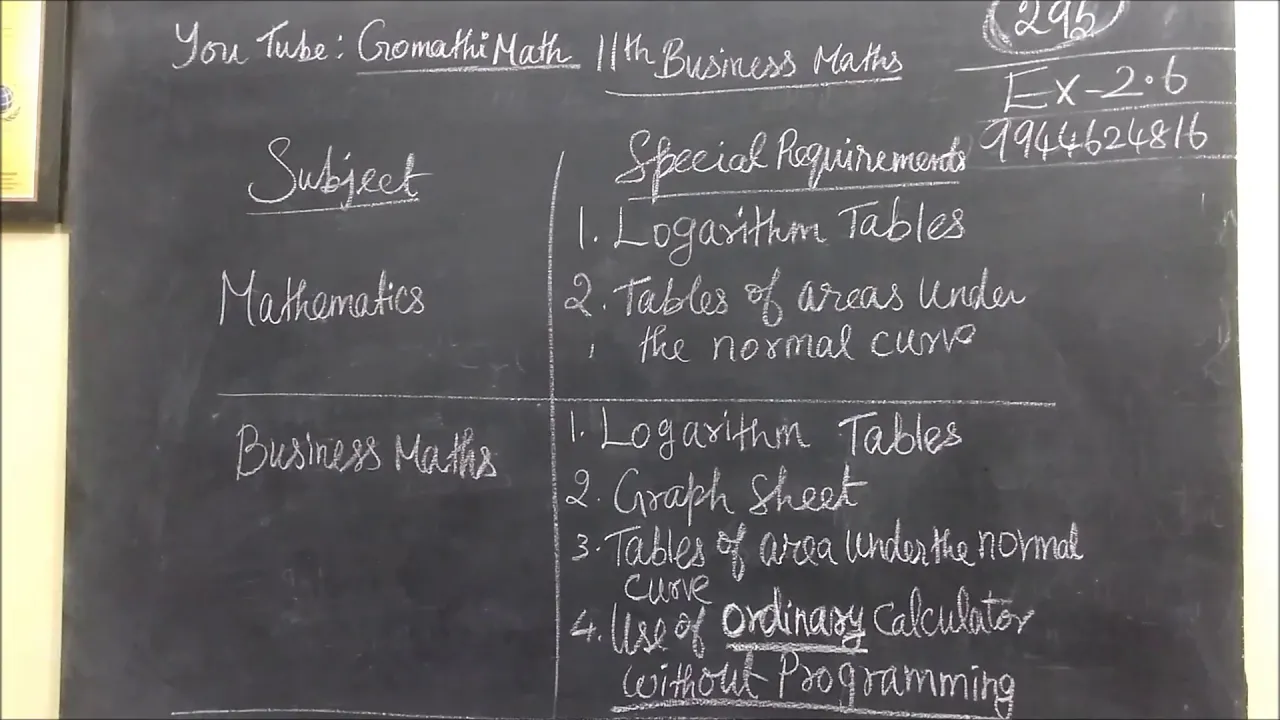 You Tube: Gomathi Math 11th Business Maths
295
Ex-2.6
9944624816
Subject
Special Requirements
Mathematics
1. Logarithm Tables
2. Tables of areas under
the normal curve
Business Maths
1. Logarithm Tables
2. Graph Sheet
3. Tables of area under the normal
curve
4. Use of ordinary Calculator
without Programming